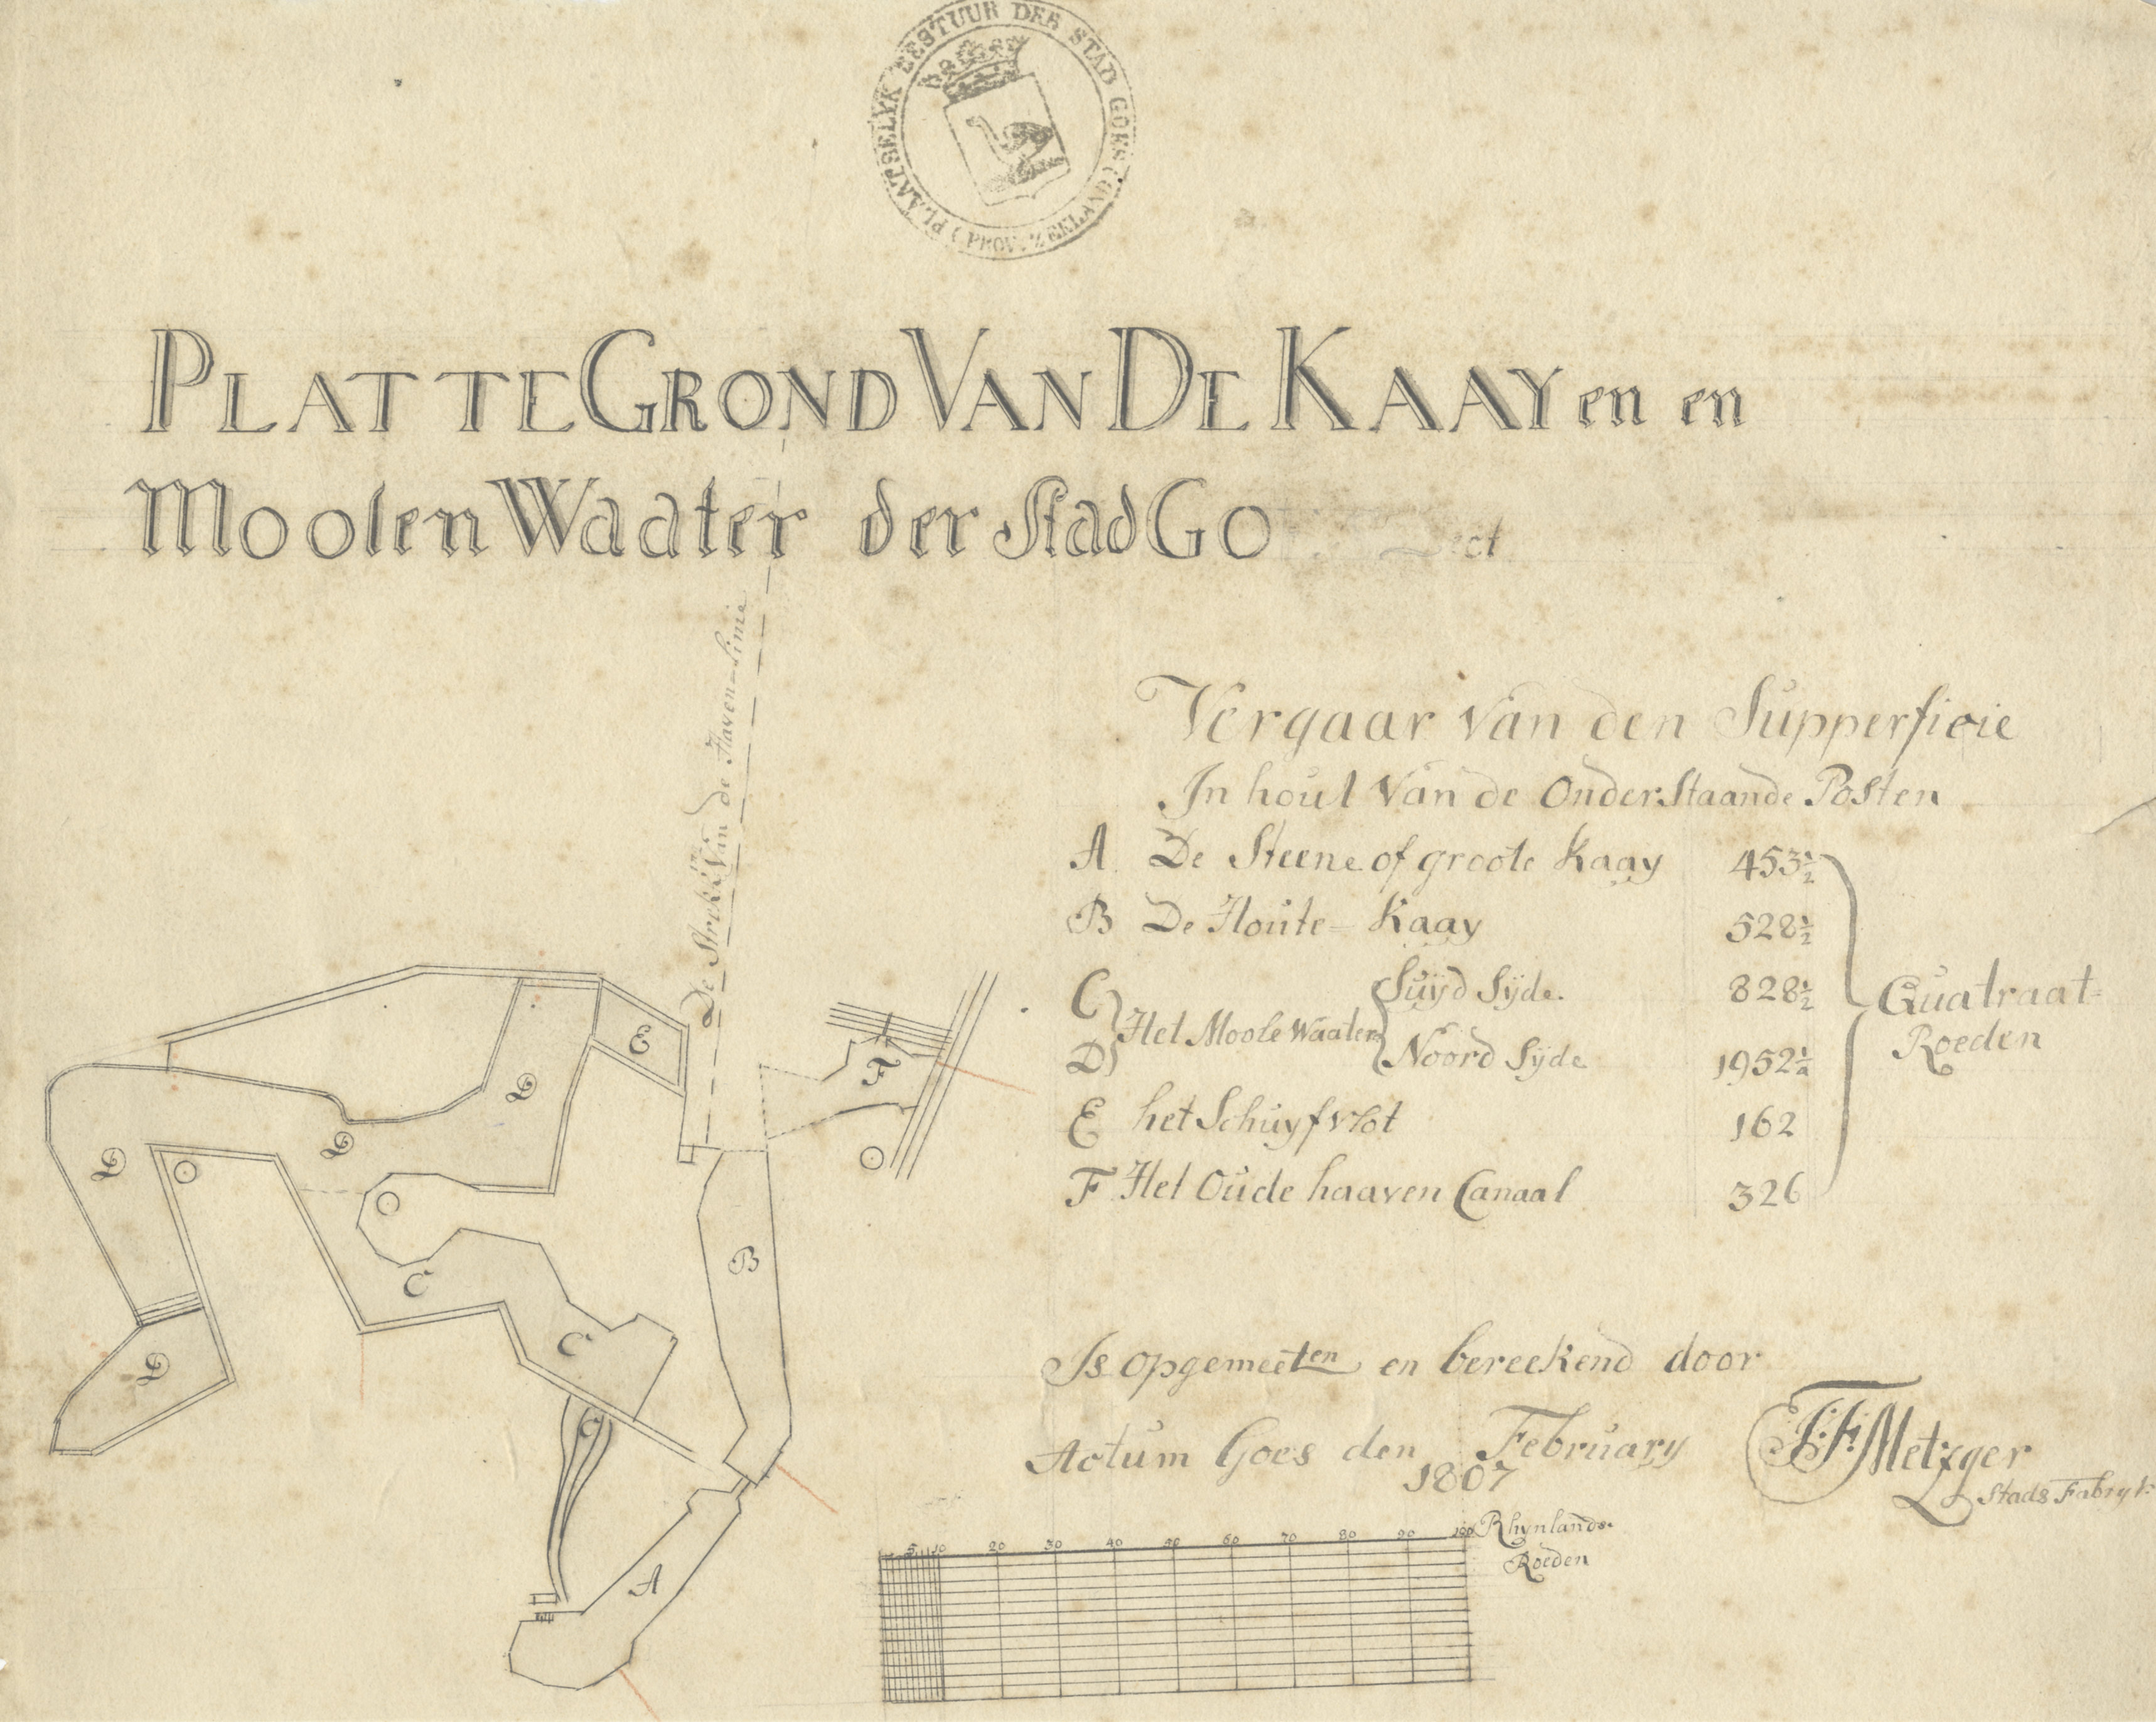 PLAATSELYK BESTUUR DER STAD GOES (PROV. ZEELAND)
PLATTE GROND VAN DE KAAYen en
Moolen Waater der Stad Go
De Strekk Van de Haven-Linie
Vergaar van den Supperficie
In houd Van de Onder Staande Posten
A De Steene of groote Kaay 453½
B De Houte- Kaay 528½
C Suÿd Sÿde. 828½
Het Moole Waater
D Noord Sÿde 1952½
E het Schuyfvlot 162
F Het Oude haaven Canaal 326
Quatraat-
Roeden
Is opgemeeten en bereekend door
Actum Goes den February
1807
J:F: Metzger
Stads Fabryk:
5 10 20 30 40 50 60 70 80 90 100 Rhynlands.
Roeden
E
D
D
D
D
C
C
C
F
B
A